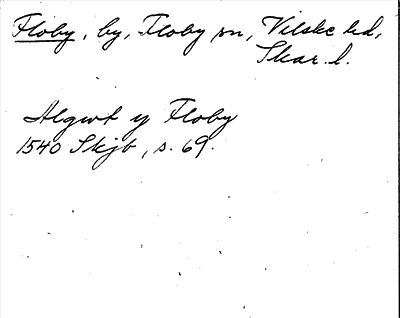 Floby, by, Floby sn, Vilske hd,
Skar. l.
Algwt y Floby
1540 Skjb, s. 69.